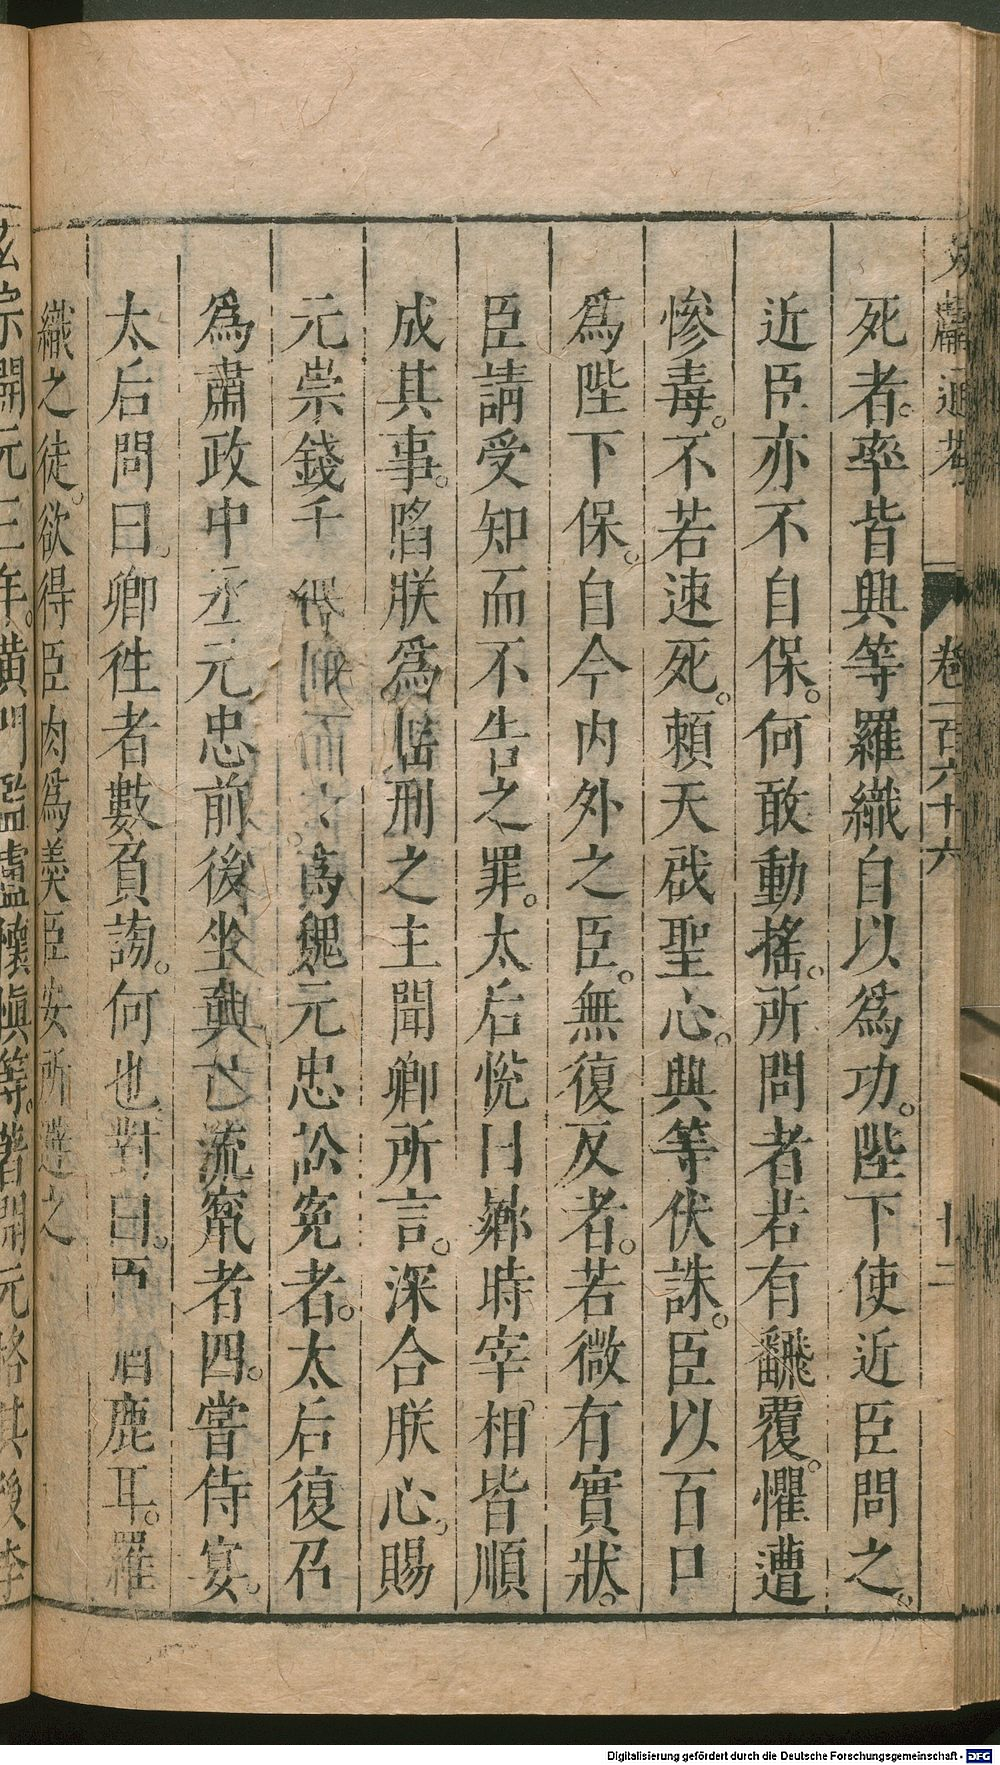 文獻通考 卷一百六十六 十二
死者率皆興等羅織自以爲功。陛下使近臣問之。
近臣亦不自保。何敢動搖。所問者若有翻覆。懼遭
慘毒。不若速死。賴天啟聖心。興等伏誅。臣以百口
爲陛下保。自今內外之臣。無復反者。若微有實狀。
臣請受知而不告之罪。太后悅曰鄉時宰相皆順
成其事。陷朕爲淫刑之主聞卿所言。深合朕心。賜
元崇錢千 而 爲魏元忠訟冤者。太后復召
爲肅政中丞元忠前後坐棄亡流竄者四。嘗侍宴。
太后問曰。卿往者數負謗。何也對曰。臣猶鹿耳。羅
織之徒。欲得臣肉爲羹臣安所避之
玄宗開元三年。黃門監盧懷愼等。著開元格其後李
Digitalisierung gefördert durch die Deutsche Forschungsgemeinschaft - DFG